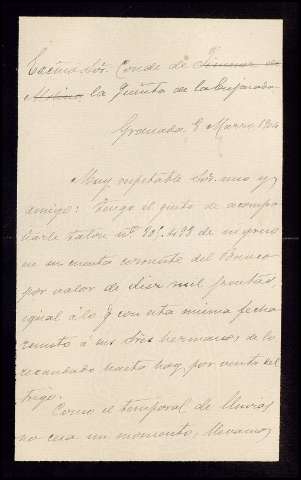 Excmo Sor. Conde de Ximenez de
Molina, la Quinta de la Enjarada
Granada 8 Marzo 1904
Muy respetable Sor. mio y
amigo: Tengo el gusto de acompa
ñarle talón nº 101.488 de ingreso
en su cuenta corriente del Banco
por valor de diez mil pesetas,
igual á lo q con esta misma fecha
remito á sus Sres hermanos de lo
recaudado hasta hoy, por venta del
trigo.
Como el temporal de lluvias
no cesa un momento, llevamos